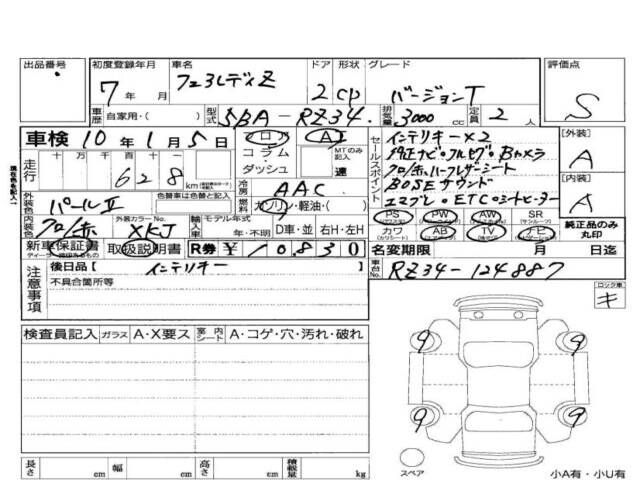 出品番号 初度登録年月 車名 ドア 形状 グレード 評価点
7年 月 フェアレディZ 2 CP バージョンT S
車歴 自家用・( ) 型式 5BA-RZ34 排気量 3000 cc 定員 2 人
車検 10年1月5日 フロア A セールスポイント インテリキー×2 [外装]
走行 十万 万 千 百 十 コラム MTのみ記入 純正ナビ・フルセグ・Bカメラ A
628 km ダッシュ 速 クロ/赤ハーフレザーシート [内装]
外装色 パールII 色替車は色替と記入 冷房 AAC BOSEサウンド A
燃料 ガソリン・軽油・( ) エマブレ・ETC・シートヒーター
内装色 クロ/赤 外装カラーNo. XKJ 輸入車 モデル年式 年・不明 D車・並 右H・左H PS PW AW SR
カワ AB TV ナビ 純正品のみ丸印
新車保証書 取扱説明書 R券 ¥10,830 名変期限 月 日迄
注意事項 後日品【 インテリキー 】 車台No. RZ34-124887
不具合箇所等 ロック車
キ
検査員記入 ガラス A・X要ス 室内シート A・コゲ・穴・汚れ・破れ
9 9
9 9
長さ cm 幅 cm 高さ cm 積載量 kg スペア 小A有・小U有